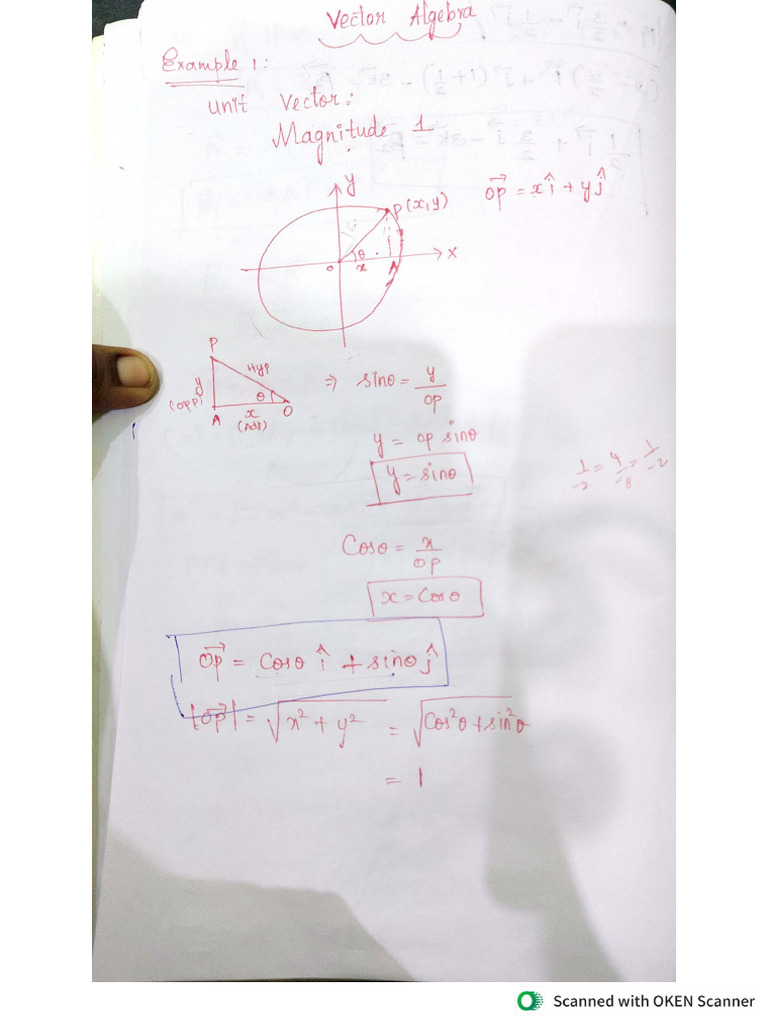 Vector Algebra
Example 1:
unit Vector:
Magnitude 1
y
P(x,y)
OP⃗ = xî + yĵ
θ
X
O
x
A
P
Hyp
y
(opp)
θ
A
x
O
(Adj)
⇒ sinθ = y/OP
y = OP sinθ
y = sinθ
1/-2 = 4/-8 = 1/-2
Cosθ = x/OP
x = Cosθ
OP⃗ = Cosθ î + sinθ ĵ
|OP⃗| = √(x² + y²) = √(Cos²θ + sin²θ)
= 1
Scanned with OKEN Scanner